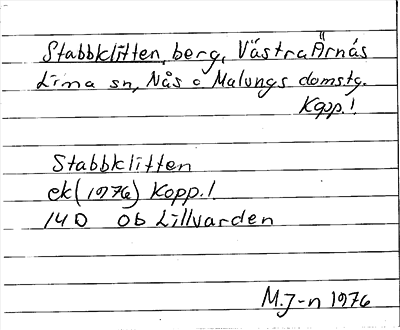 Stabbklitten, berg, Västra Ärnäs
Lima sn, Nås o Malungs domstg.
Kopp.!
Stabbklitten
ek (1976) Kopp.!
14D Ob Lillvarden
M.J-n 1976